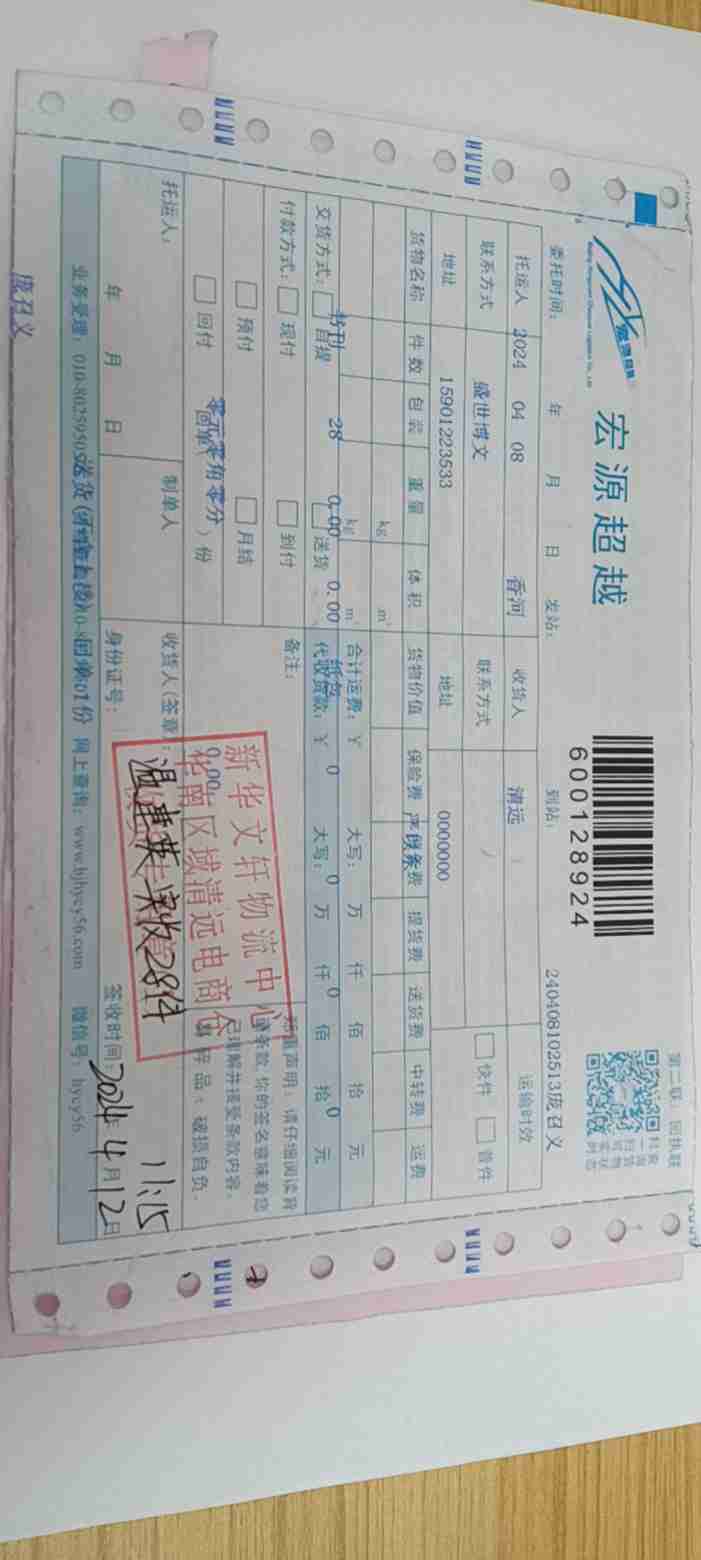 宏源超越
600128924
第二联：回执联
240408102513庞召义
委托时间： 年 月 日 发站： 到站：
2024 04 08 香河 清远
托运人 盛世博文 收货人 运输时效
联系方式 15901223533 联系方式 0000000 快件 普件
地址 地址
货物名称 件数 包装 重量 体积 货物价值 保险费 提货费 送货费 中转费 运费
kg m³
书刊 28 0.00 0.00 纸包
合计运费：￥ 大写： 万 仟 佰 拾 元
交货方式： 自提 送货 代收货款：￥ 0 大写： 0 万 仟 0 佰 拾 0 元
付款方式： 现付 到付 备注：
预付 月结
回付 回单( )份
零元零角零分
0.00
郑重声明：请仔细阅读背
条款，你的签名意味着您
已理解并接受条款内容。
破损自负。
新华文轩物流中心
华南区域清远电商仓
托运人： 制单人 收货人(签章)：
温建英 实收28件
11:15
年 月 日 身份证号： 签收时间：2024年4月12日
业务受理：010-8025950 网上查询：www.hjhycy56.com 微信号：hycy56
庞召义